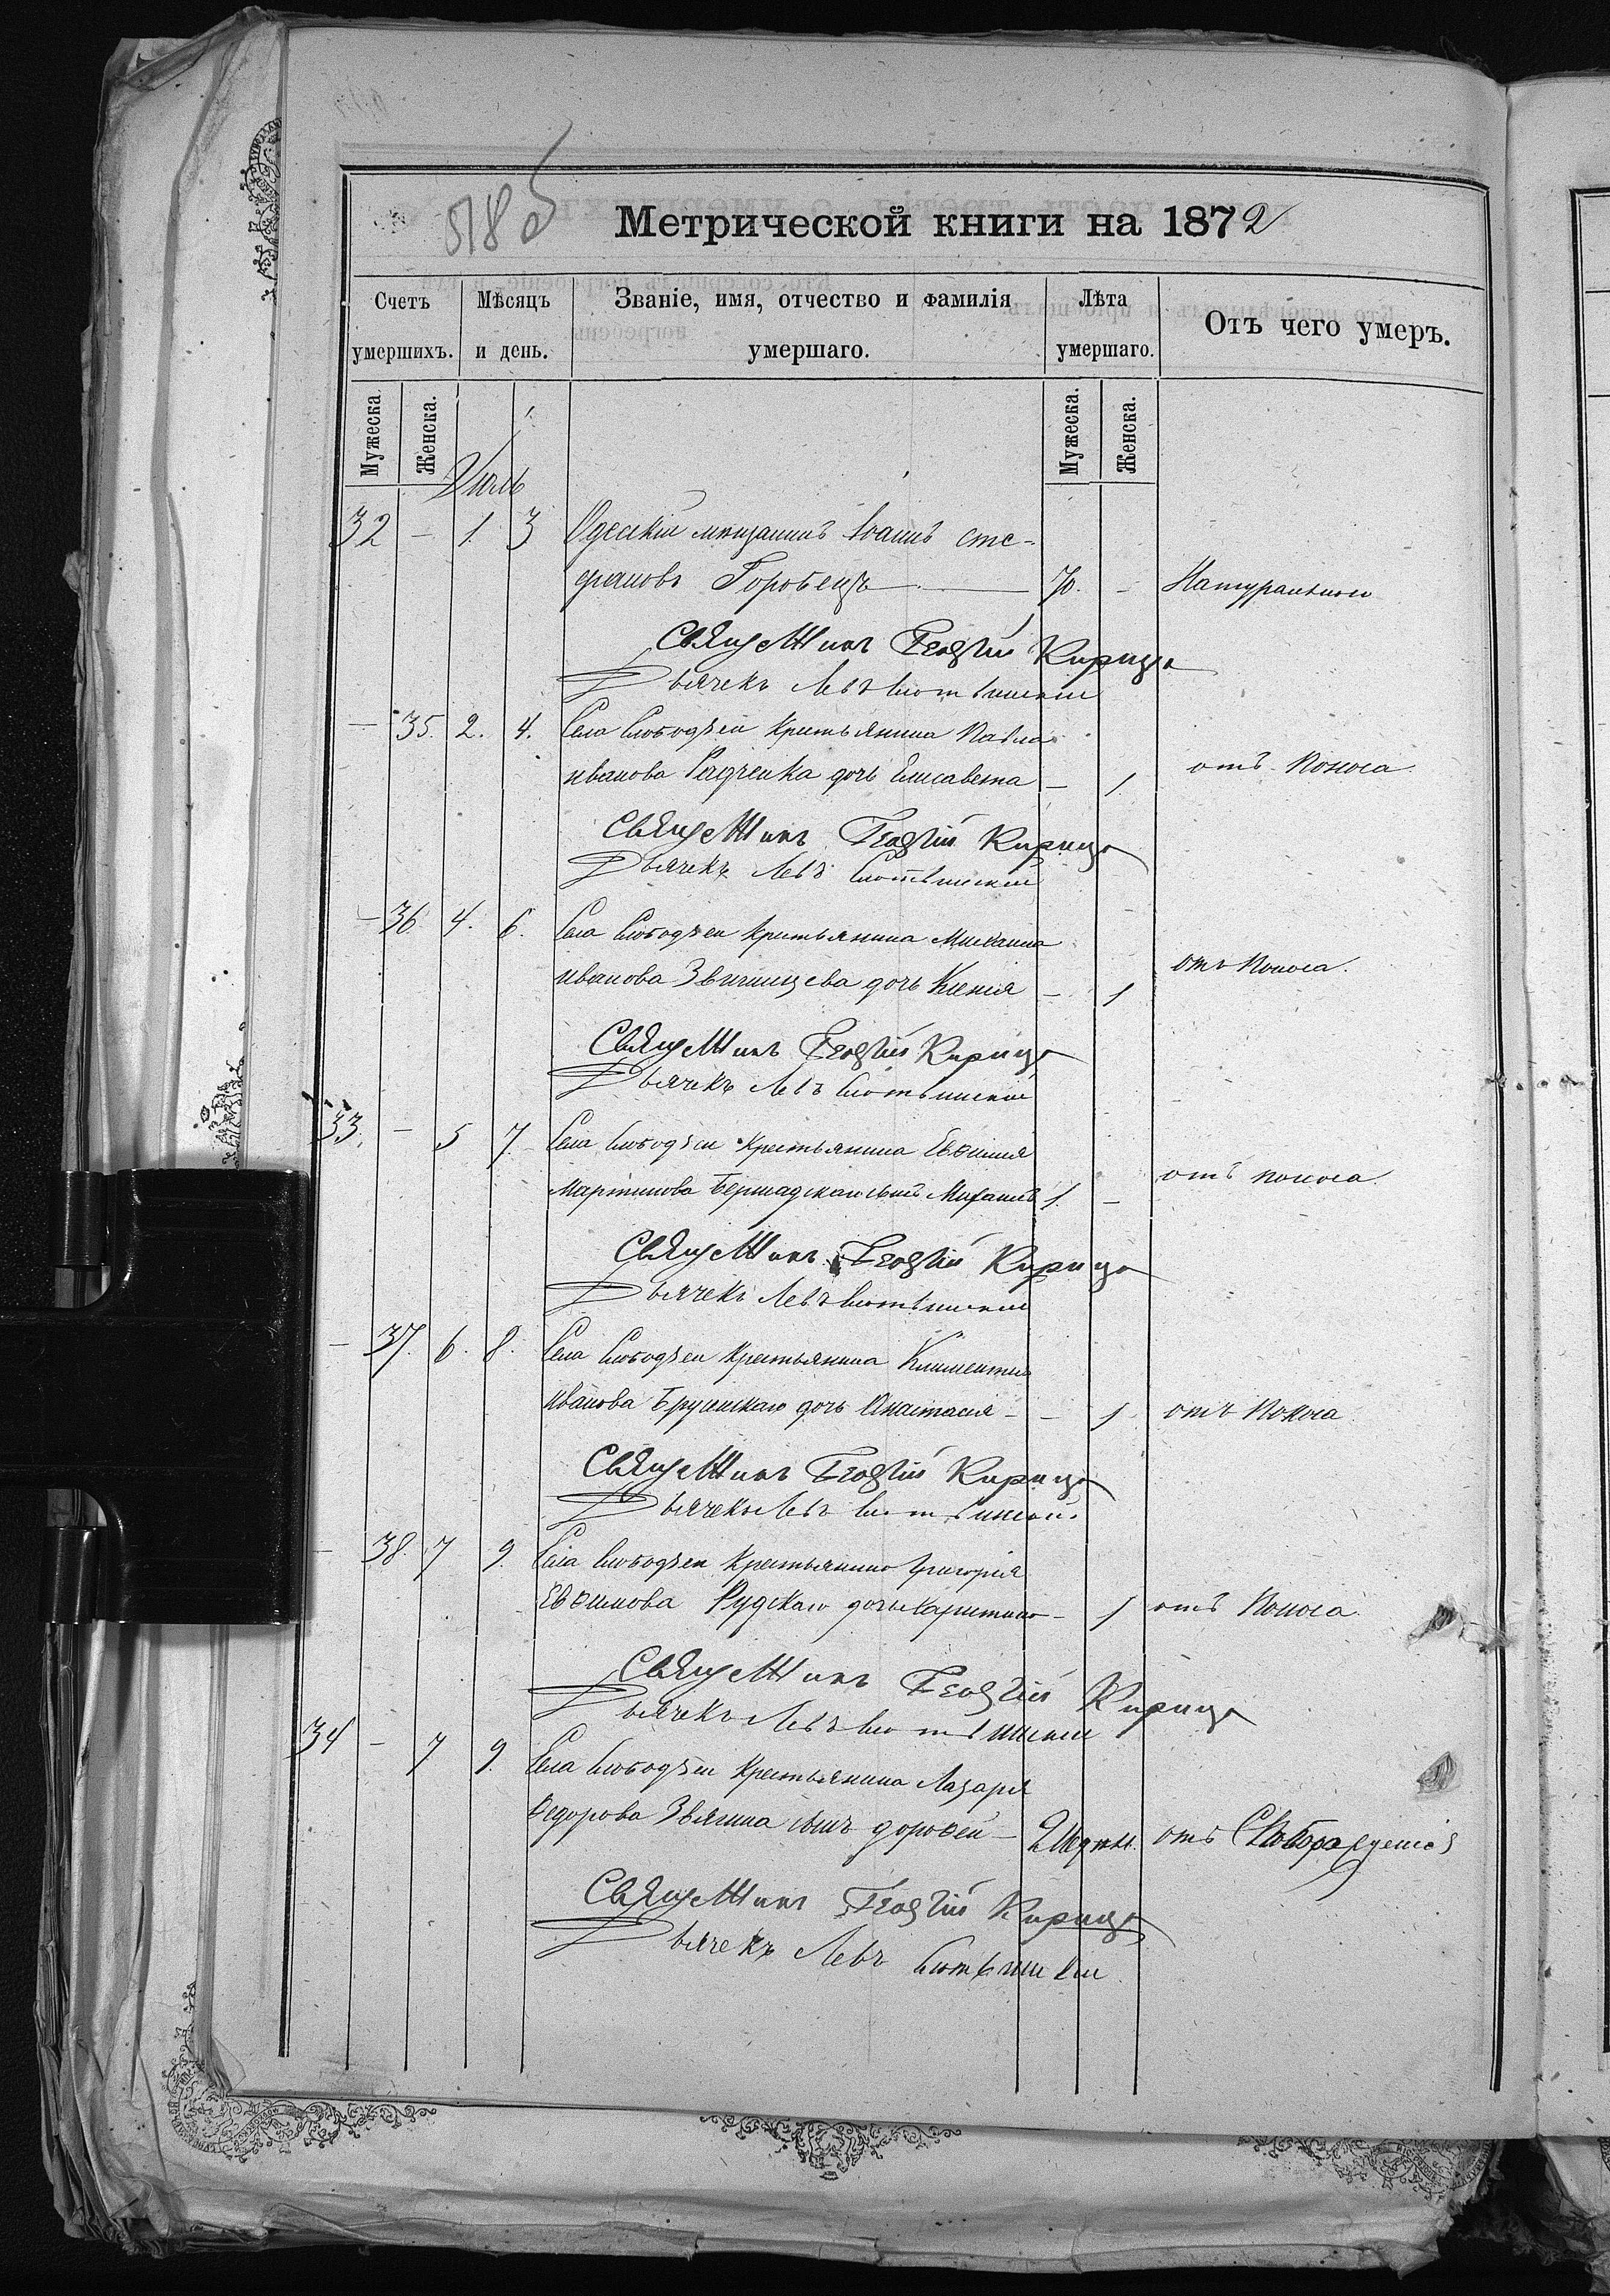 518 об
Метрической книги на 1872
Счетъ умершихъ.
Мѣсяцъ и день.
Званіе, имя, отчество и фамилія умершаго.
Лѣта умершаго.
Отъ чего умеръ.
Мужеска. Женска.
Мужеска. Женска.
Іюль
32 - 1. 3 Одесскій мещанинъ Іоаннъ Сте-
фановъ Горобецъ 70. - Натурально
Священникъ Георгій Кирица
Дьячекъ Левъ
- 35. 2. 4. Села Слободзеи Крестьянина Павла
Иванова дочь Елисавета - 1 отъ поноса.
Священникъ Георгій Кирица
Дьячекъ Левъ
- 36 4. 6. Села Слободзеи Крестьянина Михаила
Иванова дочь Ксенія - 1 отъ поноса.
Священникъ Георгій Кирица
Дьячекъ Левъ
33. - 5 7. Села Слободзеи Крестьянина Евѳимія
Мартинова Бернадскаго сынъ Михаилъ 1. - отъ поноса.
Священникъ Георгій Кирица
Дьячекъ Левъ
- 37. 6. 8. Села Слободзеи Крестьянина Климентія
Иванова дочь Анастасія - - 1 отъ поноса
Священникъ Георгій Кирица
Дьячекъ Левъ
- 38. 7 9. Села Слободзеи Крестьянина Григорія
Евѳимова Рудскаго дочь Харитина - 1 отъ поноса.
Священникъ Георгій Кирица
Дьячекъ Левъ
34 - 7 9. Села Слободзеи Крестьянина Лазаря
Ѳедорова Звягина сынъ Дороѳей - 2 отъ
Священникъ Георгій Кирица
Дьячекъ Левъ